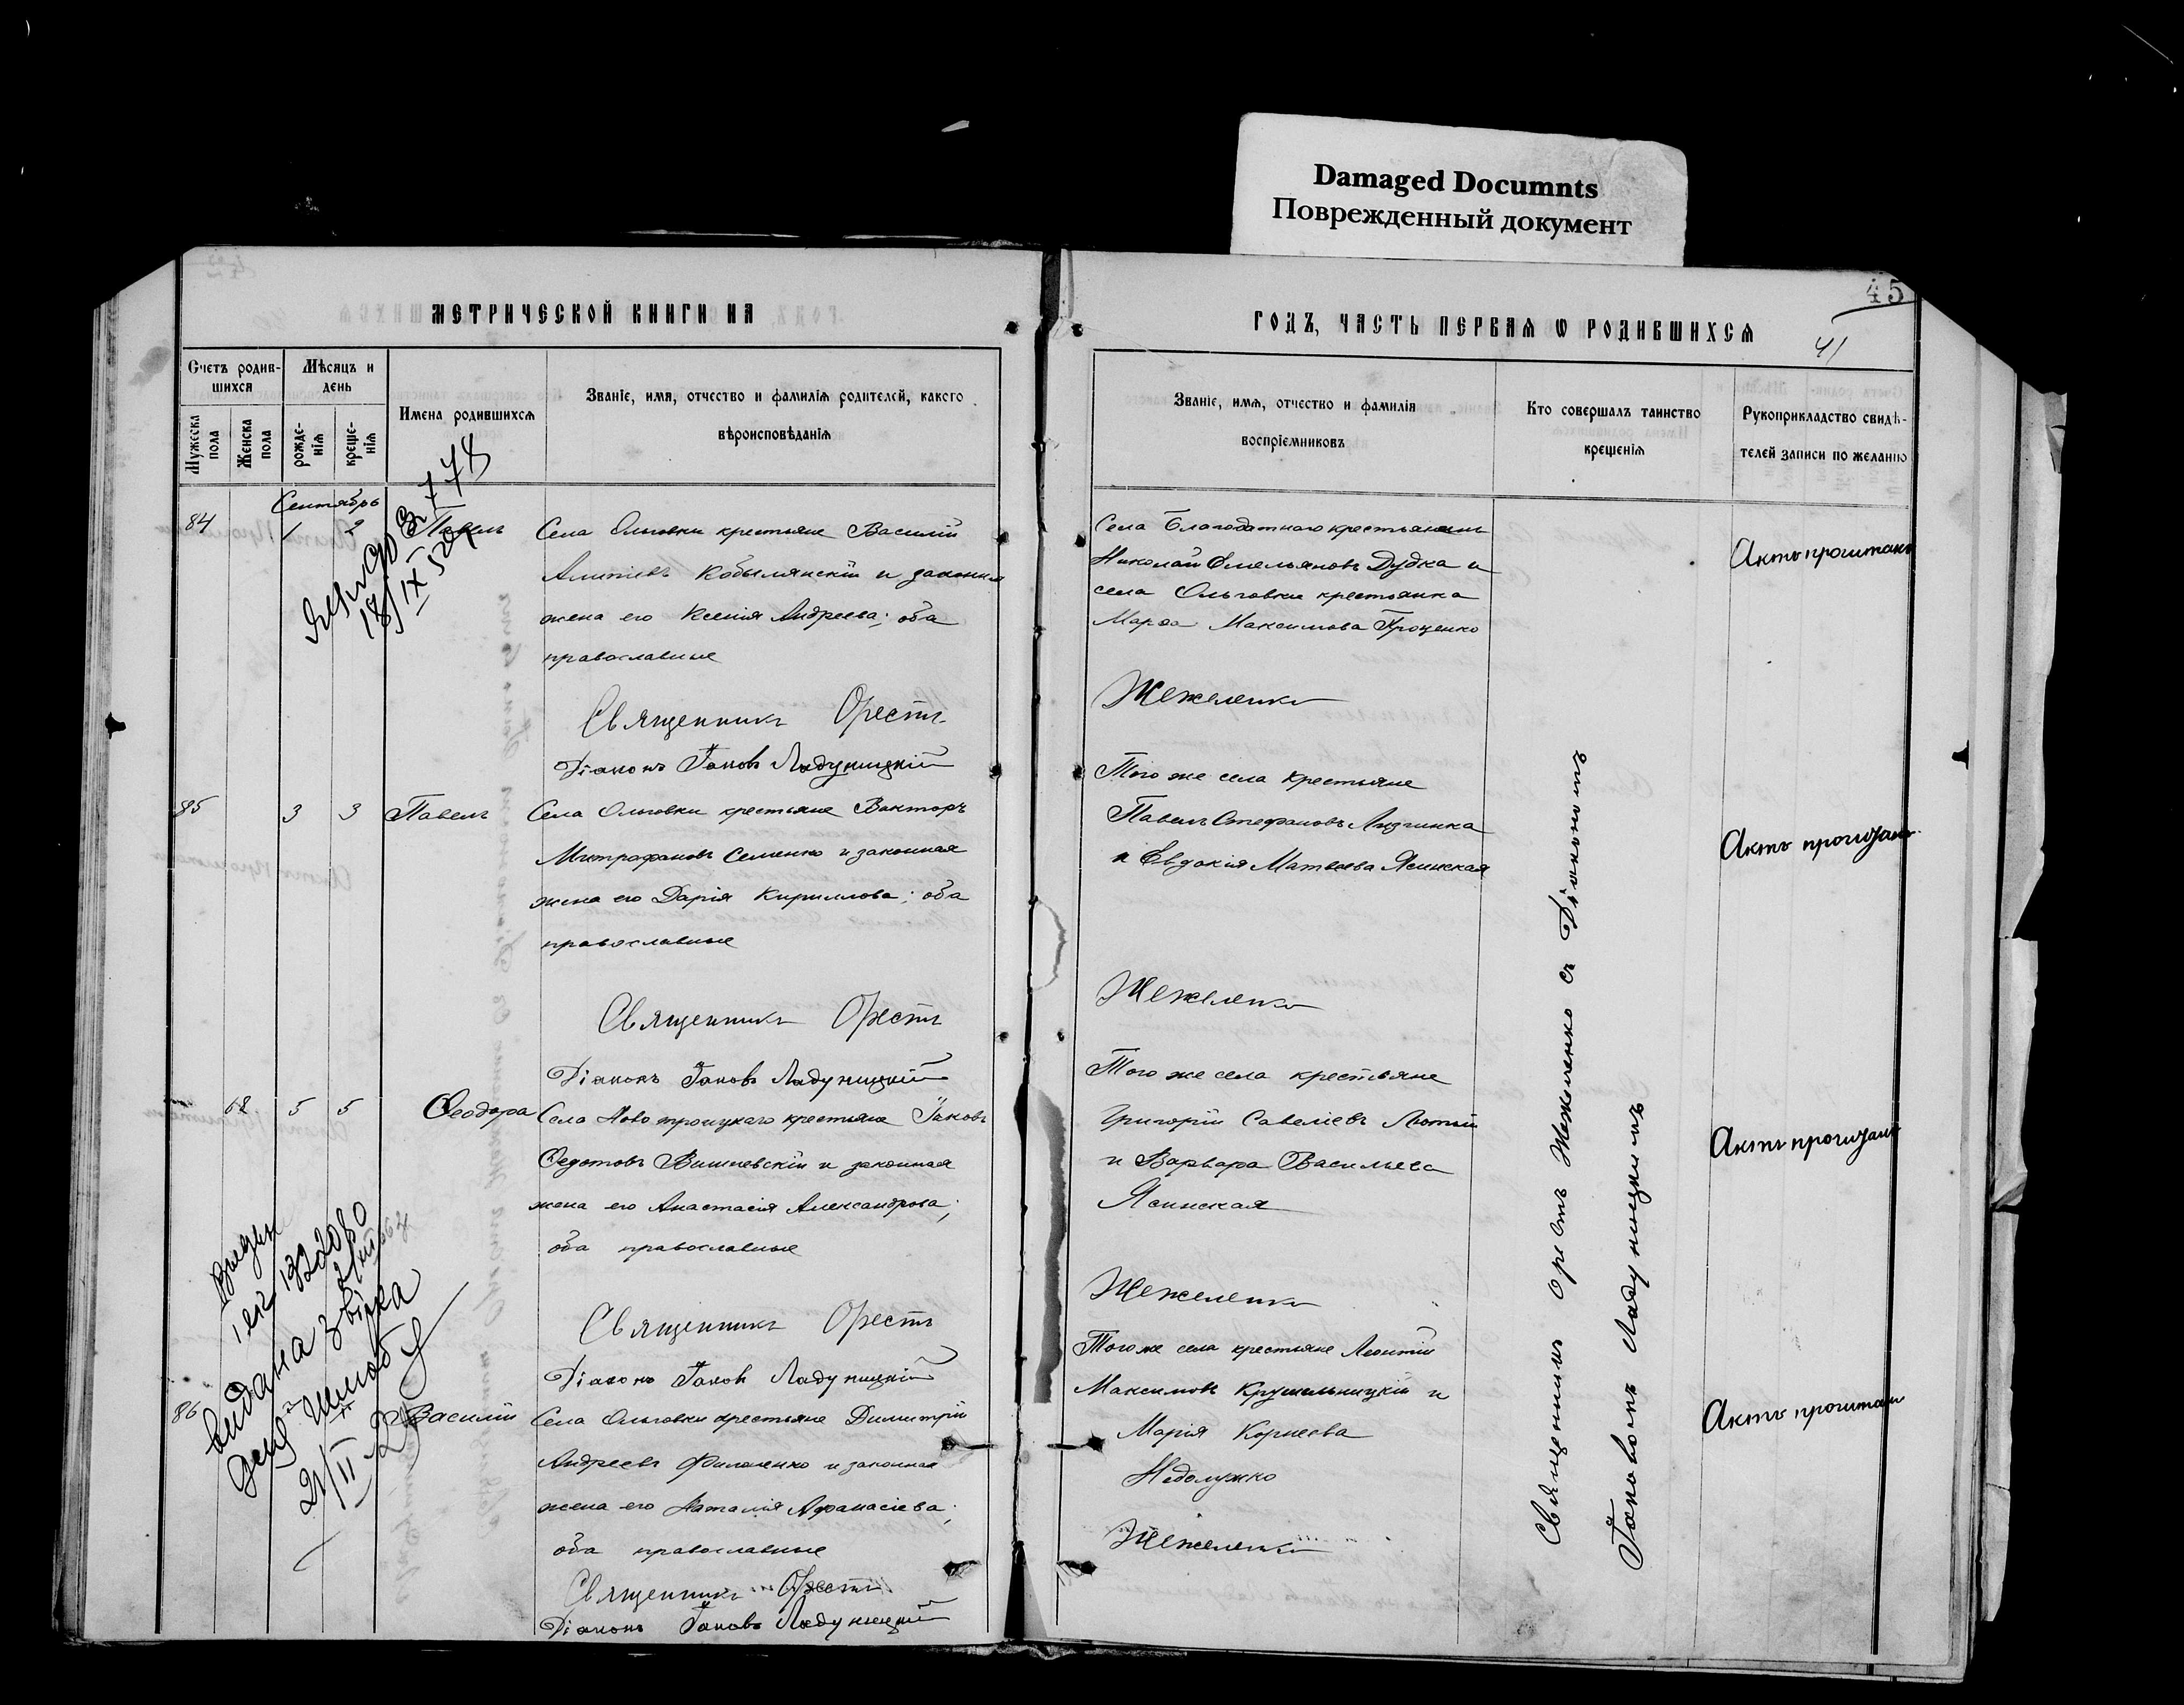 Damaged Documnts
Поврежденный документ
МЕТРИЧЕСКОЙ КНИГИ НА
ГОДЪ, ЧАСТЬ ПЕРВАЯ Ѡ РОДИВШИХСЯ
45
41
Счетъ родив-
шихся
Мѣсяцъ и
день
Мужеска
пола
Женска
пола
рожде-
нія
креще-
нія
Имена родившихся
Званіе, имя, отчество и фамилія родителей, какого
вѣроисповѣданія
Званіе, имя, отчество и фамилія
воспріємниковъ
Кто совершалъ таинство
крещенія
Рукоприкладство свидѣ-
телей записи по желанію
Сентябрь
84 1 2 Павелъ
Села Ольговки крестьяне Василій
Алипіевъ Кобылянскій и законная
жена его Ксенія Андреева; оба
православные
Священникъ Орестъ
Діаконъ Іаковъ Ладуницкій
Села Благодатнаго крестьянинъ
Николай Емельяновъ Дудка и
села Ольговки крестьянка
Марѳа Максимова Проценко
Жежеленко
Актъ прочитанъ
85 3 3 Павелъ
Села Ольговки крестьяне Викторъ
Митрофановъ Семенко и законная
жена его Дарія Кириллова; оба
православные
Священникъ Орестъ
Діаконъ Іаковъ Ладуницкій
Того же села крестьяне
Павелъ Стефановъ
и Евдокія Матвеева Ясинская
Жежеленко
Актъ прочитанъ
68 5 5 Ѳеодора
Села Новотроицкаго крестьяне Іаковъ
Ѳедотовъ Вишневскій и законная
жена его Анастасія Александрова;
оба православные
Священникъ Орестъ
Діаконъ Іаковъ Ладуницкій
Того же села крестьяне
Григорій Савеліевъ Лютый
и Варвара Васильева
Ясинская
Жежеленко
Актъ прочитанъ
видана
86 Василій
Села Ольговки крестьяне Димитрій
Андреевъ Филоненко и законная
жена его Наталія Аѳанасіева;
оба православные
Священникъ Орестъ
Діаконъ Іаковъ Ладуницкій
Того же села крестьяне Леонтій
Максимовъ Крушельницкій и
Марія Корнеева
Недолужко
Жежеленко
Актъ прочитанъ
Священникъ Орестъ Жежеленко съ Діакономъ
Іаковомъ Ладуницкимъ